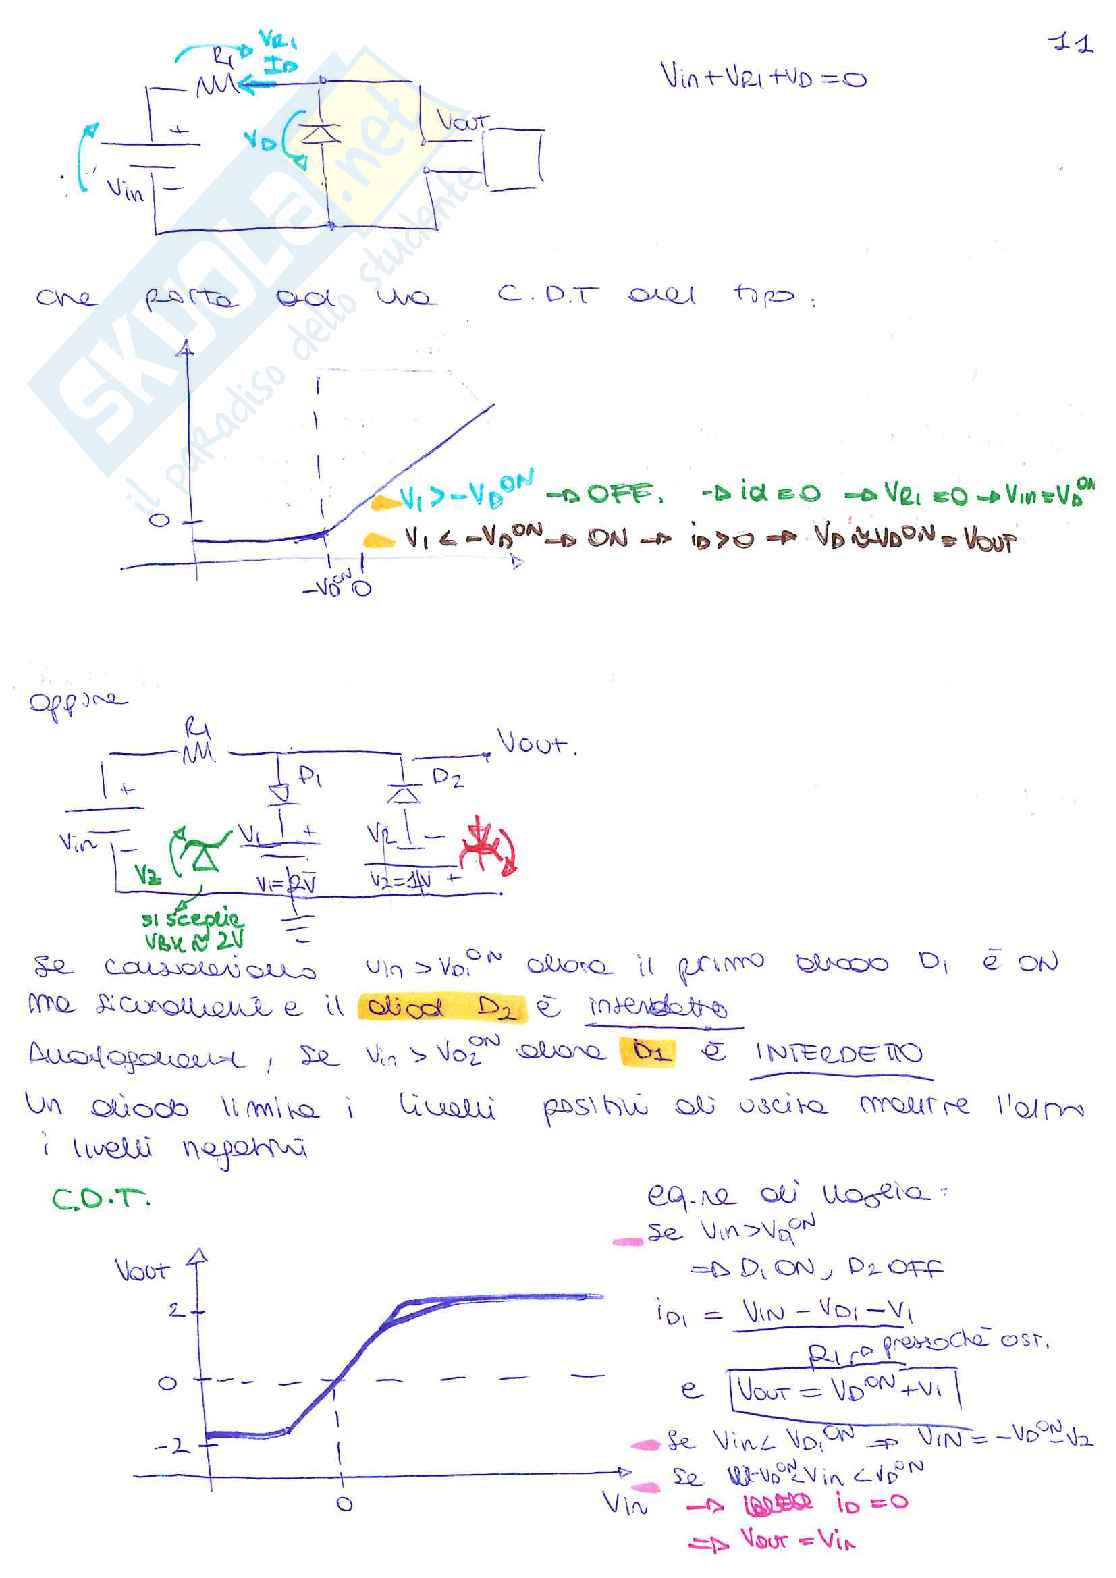 11
VR1
R1
ID
Vin+VR1+VD=0
+
VD
VOUT
Vin
−
SKUOLA.net
il paradiso dello studente
che porta ad una C.D.T del tipo:
V1>-VD^ON → OFF. → id=0 → VR1=0 → Vin=VD^ON
0
V1<-VD^ON → ON → iD>0 → VD≈VD^ON=VOUT
-VD^ON 0
oppure
R1
VOUT.
D1
D2
+
V1
+
V2
−
Vin
−
V2
V1=2V
V2=1V
+
si sceglie
VBK≈2V
Se consideriamo Vin>VD1^ON allora il primo diodo D1 è ON
ma sicuramente il diod D2 è interdetto
Analogamente, se Vin>VD2^ON allora D1 è INTERDETTO
Un diodo limita i livelli positivi di uscita mentre l'altro
i livelli negativi
C.D.T.
eq.ne di maglia:
Se Vin>VD1^ON
⇒ D1 ON, D2 OFF
VOUT
2
iD1 = VIN-VD1-V1
R1 → pressoché cost.
0
e VOUT=VD^ON+V1
-2
Se Vin<VD1^ON ⇒ VIN=-VD^ON-V2
Se -VD^ON<Vin<VD^ON
0
Vin
→ iD=0
⇒ VOUT=Vin